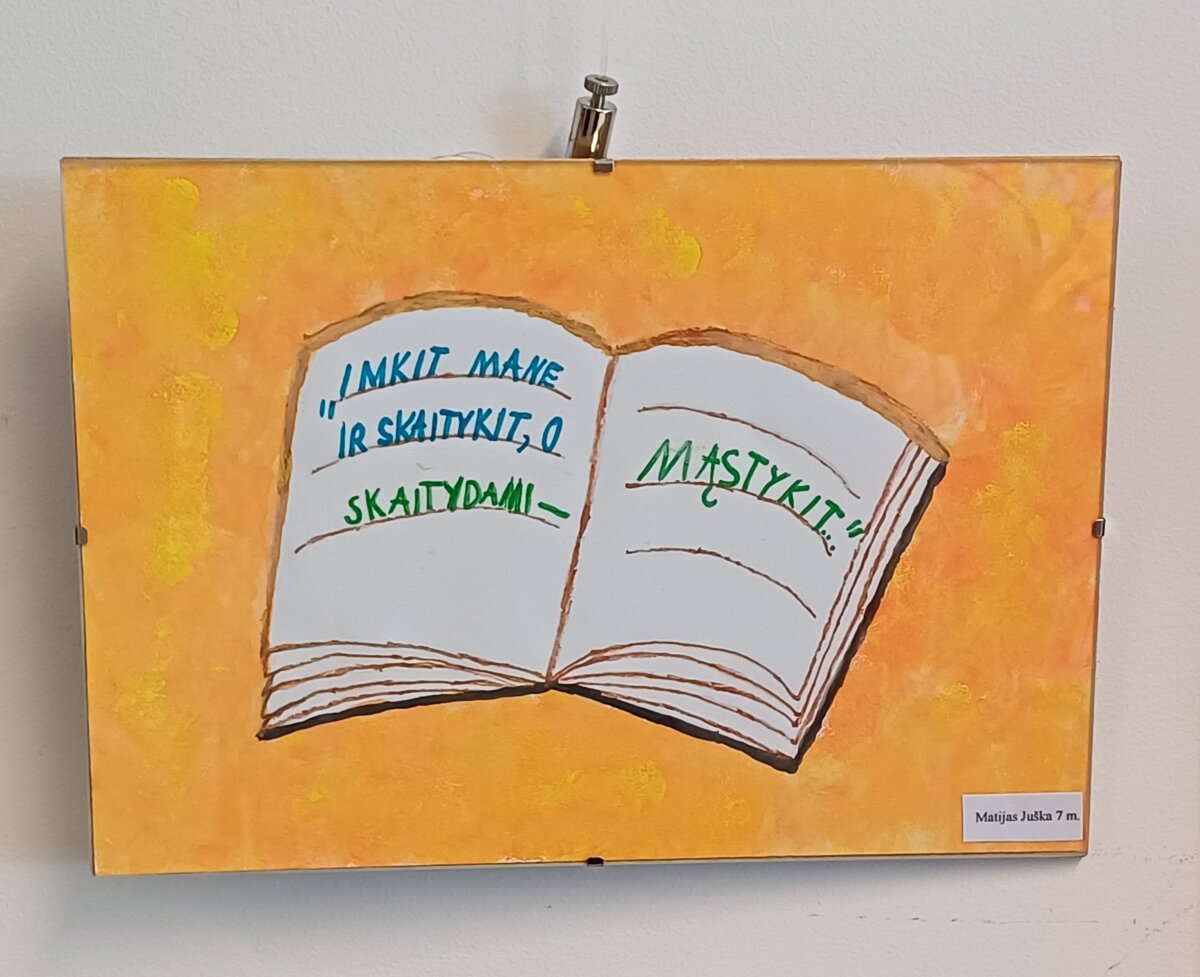 "IMKIT MANE
IR SKAITYKIT, O
SKAITYDAMI–
MĄSTYKIT..."
Matijas Juška 7 m.